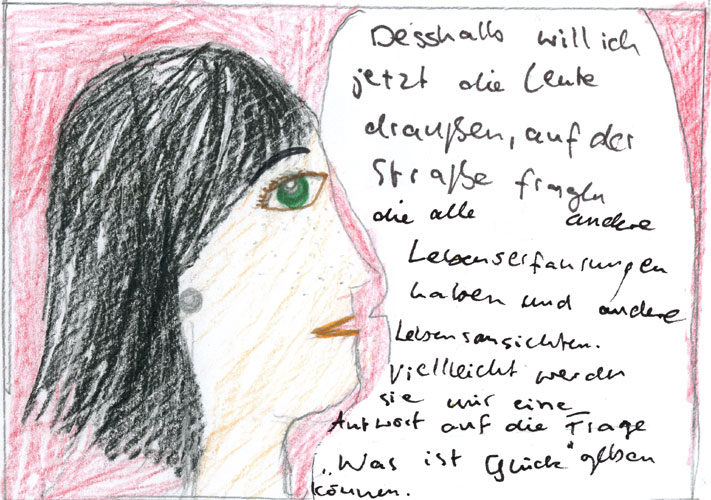 Desshalb will ich
jetzt die Leute
draußen, auf der
Straße fragen
die alle andere
Lebenserfahrungen
haben und andere
Lebensansichten.
Vielleicht werden
sie mir eine
Antwort auf die Frage
„Was ist Glück" geben
können.